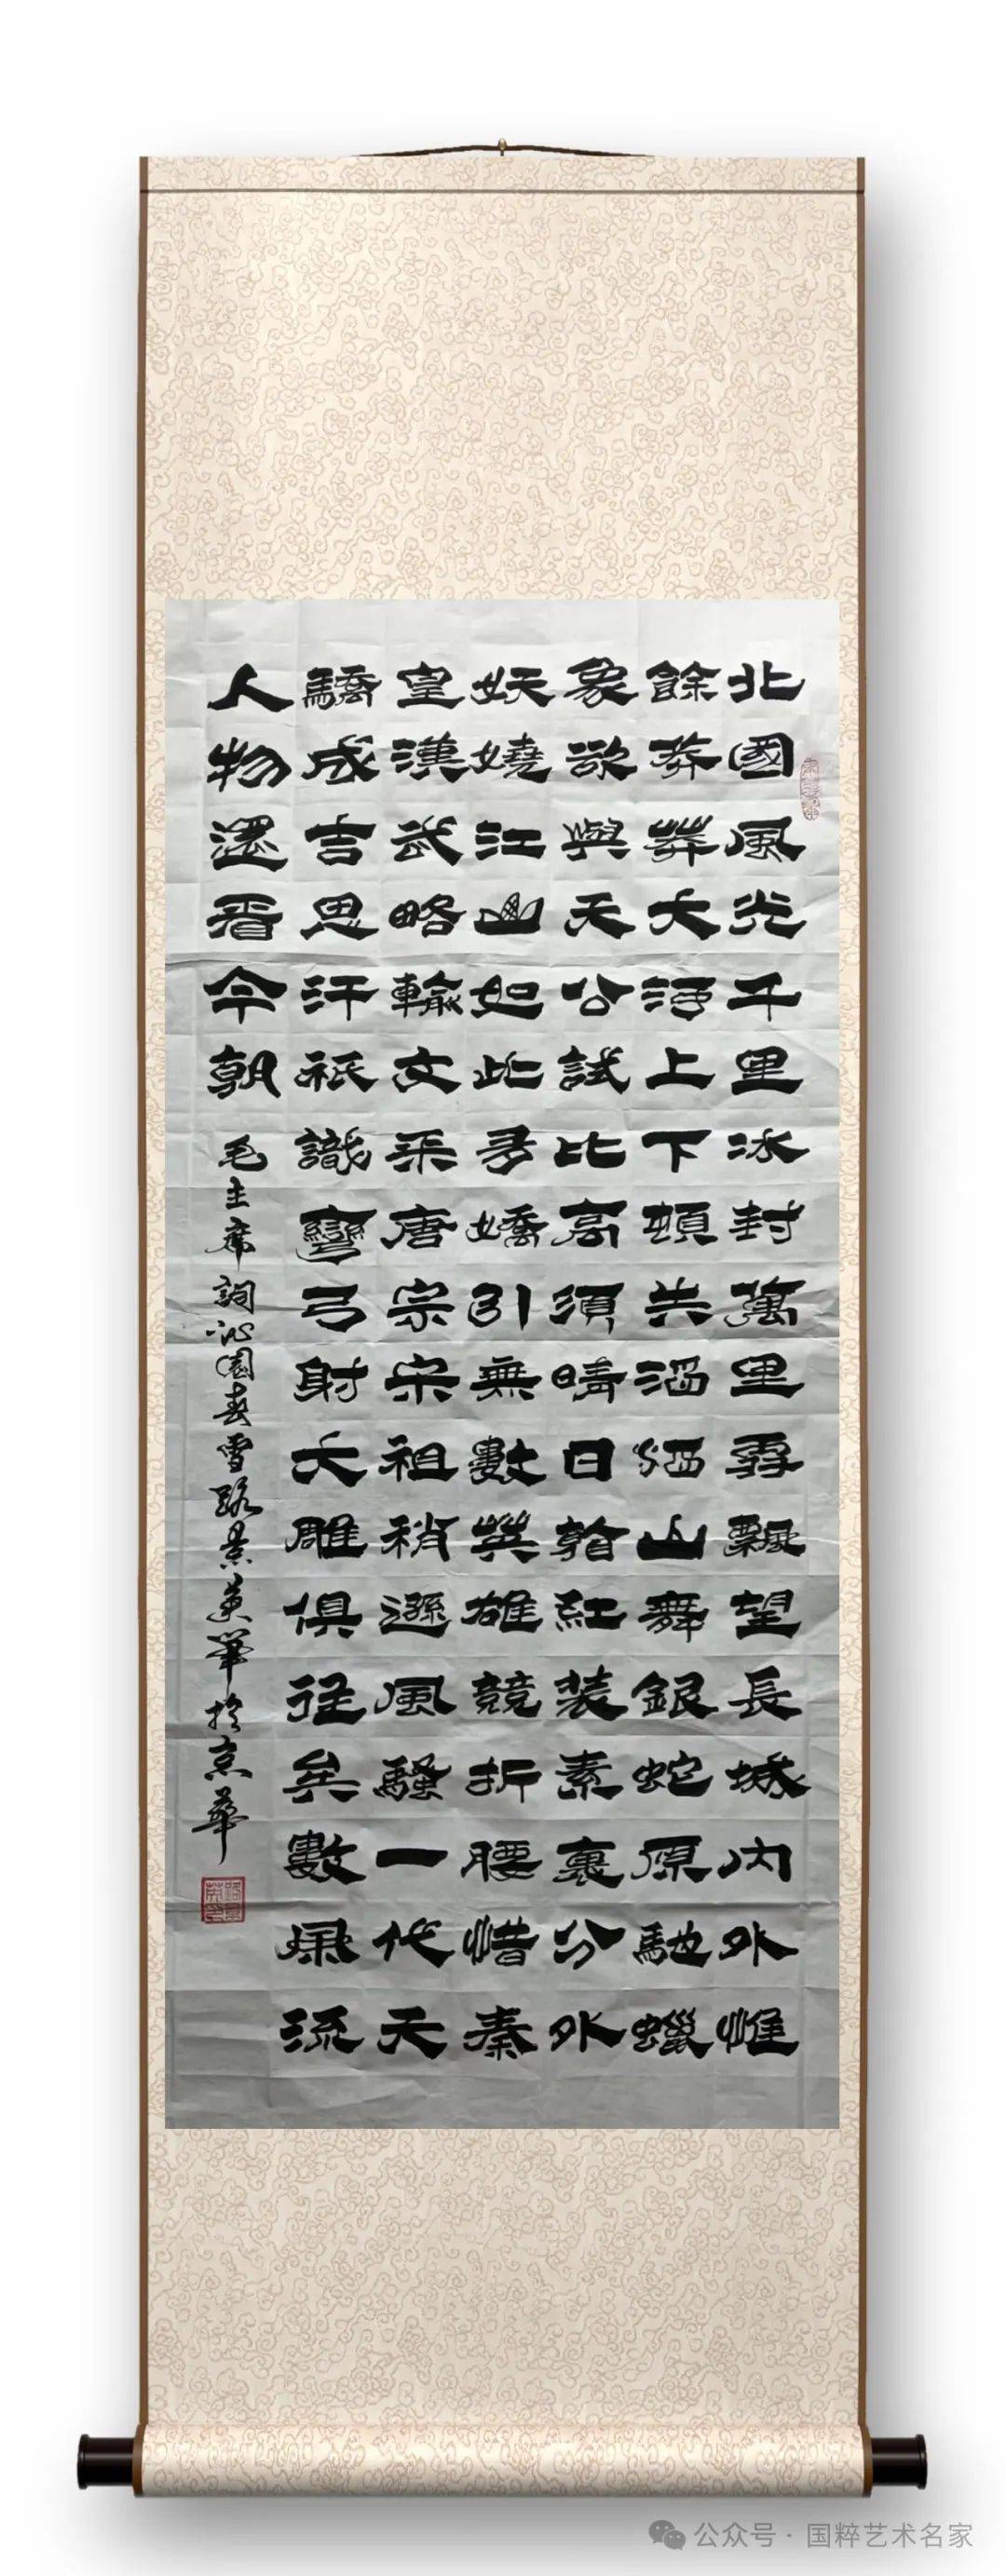 北國風光千里冰封萬里雪飄望長城内外惟
餘莽莽大河上下頓失滔滔山舞銀蛇原馳蠟
象欲與天公試比高須晴日看紅装素裹分外
妖嬈江山如此多嬌引無數英雄競折腰惜秦
皇漢武略輸文采唐宗宋祖稍遜風騷一代天
驕成吉思汗祇識彎弓射大雕俱往矣數風流
人物還看今朝 毛主席詞沁園春雪路景英筆於京華
公众号·国粹艺术名家